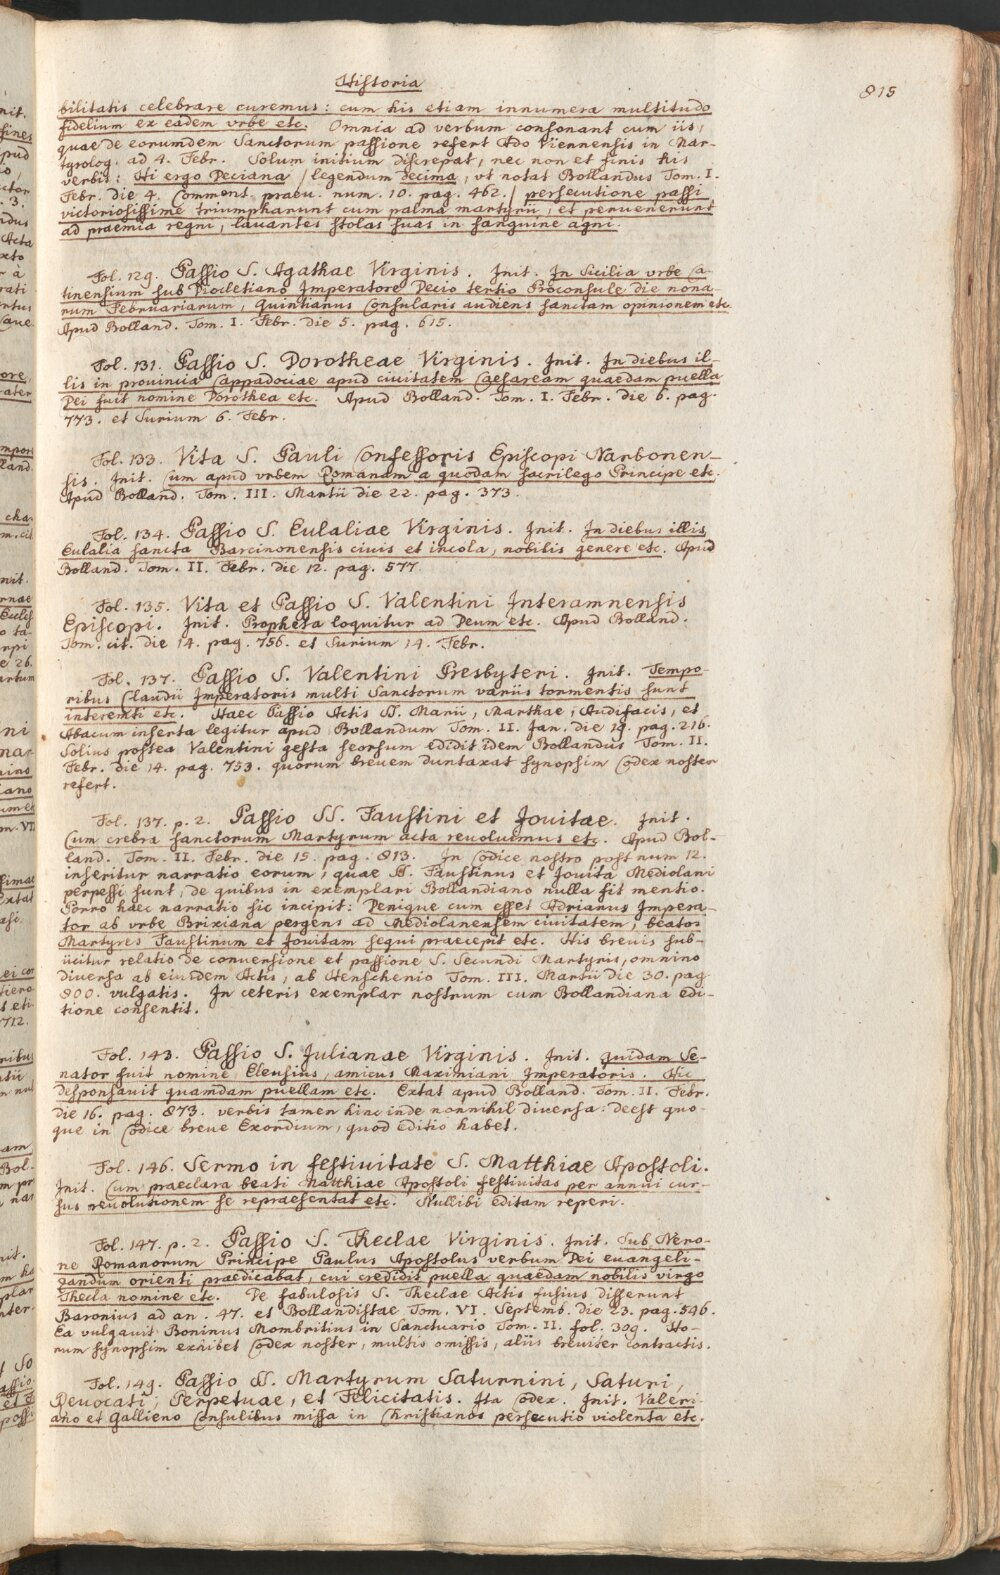 Historia
815
bilitatis celebrare curemus: cum his etiam innumera multitudo
fidelium ex eadem vrbe etc. Omnia ad verbum consonant cum iis,
quae de eorumdem Sanctorum passione refert Ado Viennensis in Mar-
tyrolog. ad 4. Febr. Solum initium discrepat, nec non et finis his
verbis: Hi ergo Deciana /legendum Decima, vt notat Bollandus Tom. I.
Febr. die 4. Comment. praeu. num. 10. pag. 462./ persecutione passi
victoriosissime triumpharunt cum palma martyrii, et peruenerunt
ad praemia regni, lauantes stolas suas in sanguine agni.
Fol. 129. Passio S. Agathae Virginis. Init. In Sicilia vrbe Ca-
tinensium sub Diocletiano Imperatore Decio tertio Proconsule die nona-
rum Februariarum, Quintianus Consularis audiens sanctam opinionem etc.
Apud Bolland. Tom. I. Febr. die 5. pag. 615.
Fol. 131. Passio S. Dorotheae Virginis. Init. In diebus il-
lis in prouincia Cappadociae apud ciuitatem Caesaream quaedam puella
Dei fuit nomine Dorothea etc. Apud Bolland. Tom. I. Febr. die 6. pag.
773. et Surium 6. Febr.
Fol. 133. Vita S. Pauli Confessoris Episcopi Narbonen-
sis. Init. Cum apud vrbem Romanam a quodam sacrilego Principe etc.
Apud Bolland. Tom. III. Martii die 22. pag. 373.
Fol. 134. Passio S. Eulaliae Virginis. Init. In diebus illis
Eulalia sancta Barcinonensis ciuis et incola, nobilis genere etc. Apud
Bolland. Tom. II. Febr. die 12. pag. 577.
Fol. 135. Vita et Passio S. Valentini Interamnensis
Episcopi. Init. Propheta loquitur ad Deum etc. Apud Bolland.
Tom. cit. die 14. pag. 756. et Surium 14. Febr.
Fol. 137. Passio S. Valentini Presbyteri. Init. Tempo-
ribus Claudii Imperatoris multi Sanctorum variis tormentis sunt
interemti etc. Haec Passio Actis SS. Marii, Marthae, Audifacis, et
Abacum inserta legitur apud Bollandum Tom. II. Jan. die 19. pag. 216.
Solius postea Valentini gesta seorsum edidit idem Bollandus Tom. II.
Febr. die 14. pag. 753. quorum breuem duntaxat synopsim Codex noster
refert.
Fol. 137. p. 2. Passio SS. Faustini et Jouitae. Init.
Cum crebra sanctorum Martyrum acta reuoluemus etc. Apud Bol-
land. Tom. II. Febr. die 15. pag. 813. In Codice nostro post num 12.
inseritur narratio eorum, quae SS. Faustinus et Jouita Mediolani
perpessi sunt, de quibus in exemplari Bollandiano nulla fit mentio.
Porro haec narratio sic incipit: Denique cum esset Adrianus Impera-
tor ab vrbe Brixiana pergens ad Mediolanensem ciuitatem, beatos
Martyres Faustinum et Jouitam sequi praecepit etc. His breuis sub-
iicitur relatio de conuersione et passione S. Secundi Martyris, omnino
diuersa ab eiusdem Actis, ab Henschenio Tom. III. Martii die 30. pag.
800. vulgatis. In ceteris exemplar nostrum cum Bollandiana edi-
tione consentit.
Fol. 143. Passio S. Julianae Virginis. Init. Quidam Se-
nator fuit nomine Eleusius, amicus Maximiani Imperatoris. Hic
desponsauit quamdam puellam etc. Extat apud Bolland. Tom. II. Febr.
die 16. pag. 873. verbis tamen hinc inde nonnihil diuersa. Deest quo-
que in Codice breue Exordium, quod editio habet.
Fol. 146. Sermo in festiuitate S. Matthiae Apostoli.
Init. Cum praeclara beati Matthiae Apostoli festiuitas per annui cur-
sus reuolutionem se repraesentat etc. Nullibi editam reperi.
Fol. 147. p. 2. Passio S. Theclae Virginis. Init. Sub Nero-
ne Romanorum Principe Paulus Apostolus verbum Dei euangeli-
zandum orienti praedicabat, cui credidit puella quaedam nobilis virgo
Thecla nomine etc. De fabulosis S. Theclae Actis fusius disserunt
Baronius ad an. 47. et Bollandistae Tom. VI. Septemb. die 23. pag. 546.
Ea vulgauit Boninus Mombritius in Sanctuario Tom. II. fol. 309. Ho-
rum synopsim exhibet Codex noster, multis omissis, aliis breuiter contractis.
Fol. 149. Passio SS. Martyrum Saturnini, Saturi,
Reuocati, Perpetuae, et Felicitatis. Ita Codex. Init. Valeri-
ano et Gallieno Consulibus missa in Christianos persecutio violenta etc.